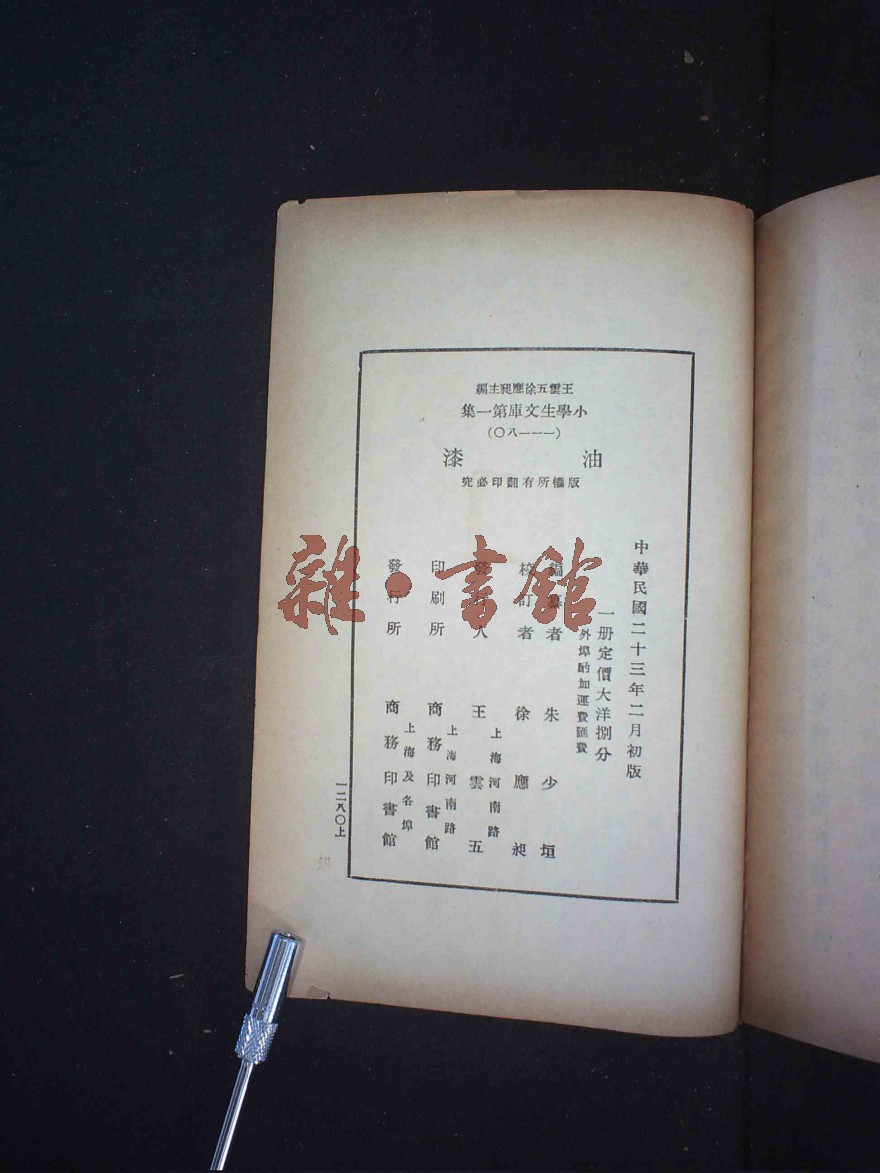 王雲五徐應昶主編
小學生文庫第一集
(一一一八〇)
油漆
版權所有翻印必究
中華民國二十三年二月初版
一册定價大洋捌分
外埠酌加運費匯費
編者 朱少垣
校訂者 徐應昶
上海河南路
發行人 王雲五
上海河南路
印刷所 商務印書館
上海及各埠
發行所 商務印書館
一二八〇上
雜·書館